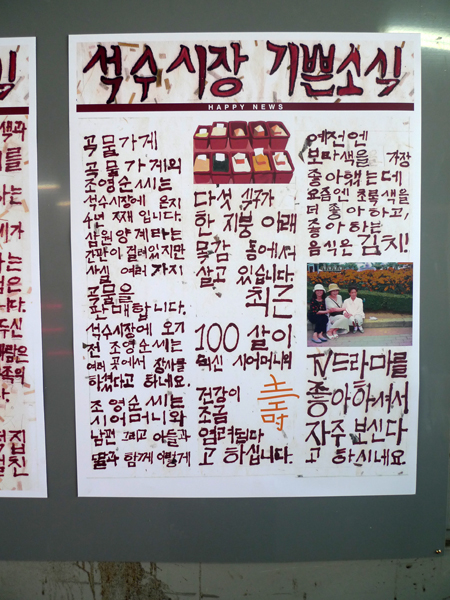 석수시장 기쁜소식
HAPPY NEWS
곡물가게
곡물가게의
조영순씨는
석수시장에 온지
4년 째입니다.
삼원양계라는
간판이 걸려있지만
사실 여러가지
곡물을
판매합니다.
석수시장에 오기
전 조영순씨는
여러 곳에서 장사를
하셨다고 하네요.
조영순씨는
시어머니와
남편 그리고 아들과
딸과 함께 이렇게
다섯 식구가
한 지붕 아래
목감 동에서
살고 있습니다.
최근
100 살이
되신 시어머니의
건강이
조금
염려된다
고 하십니다.
예전엔
보라색을 가장
좋아했는데
요즘엔 초록색을
더 좋아하고,
좋아하는
음식은 김치!
TV드라마를
좋아하셔서
자주 보신다
고 하시네요.